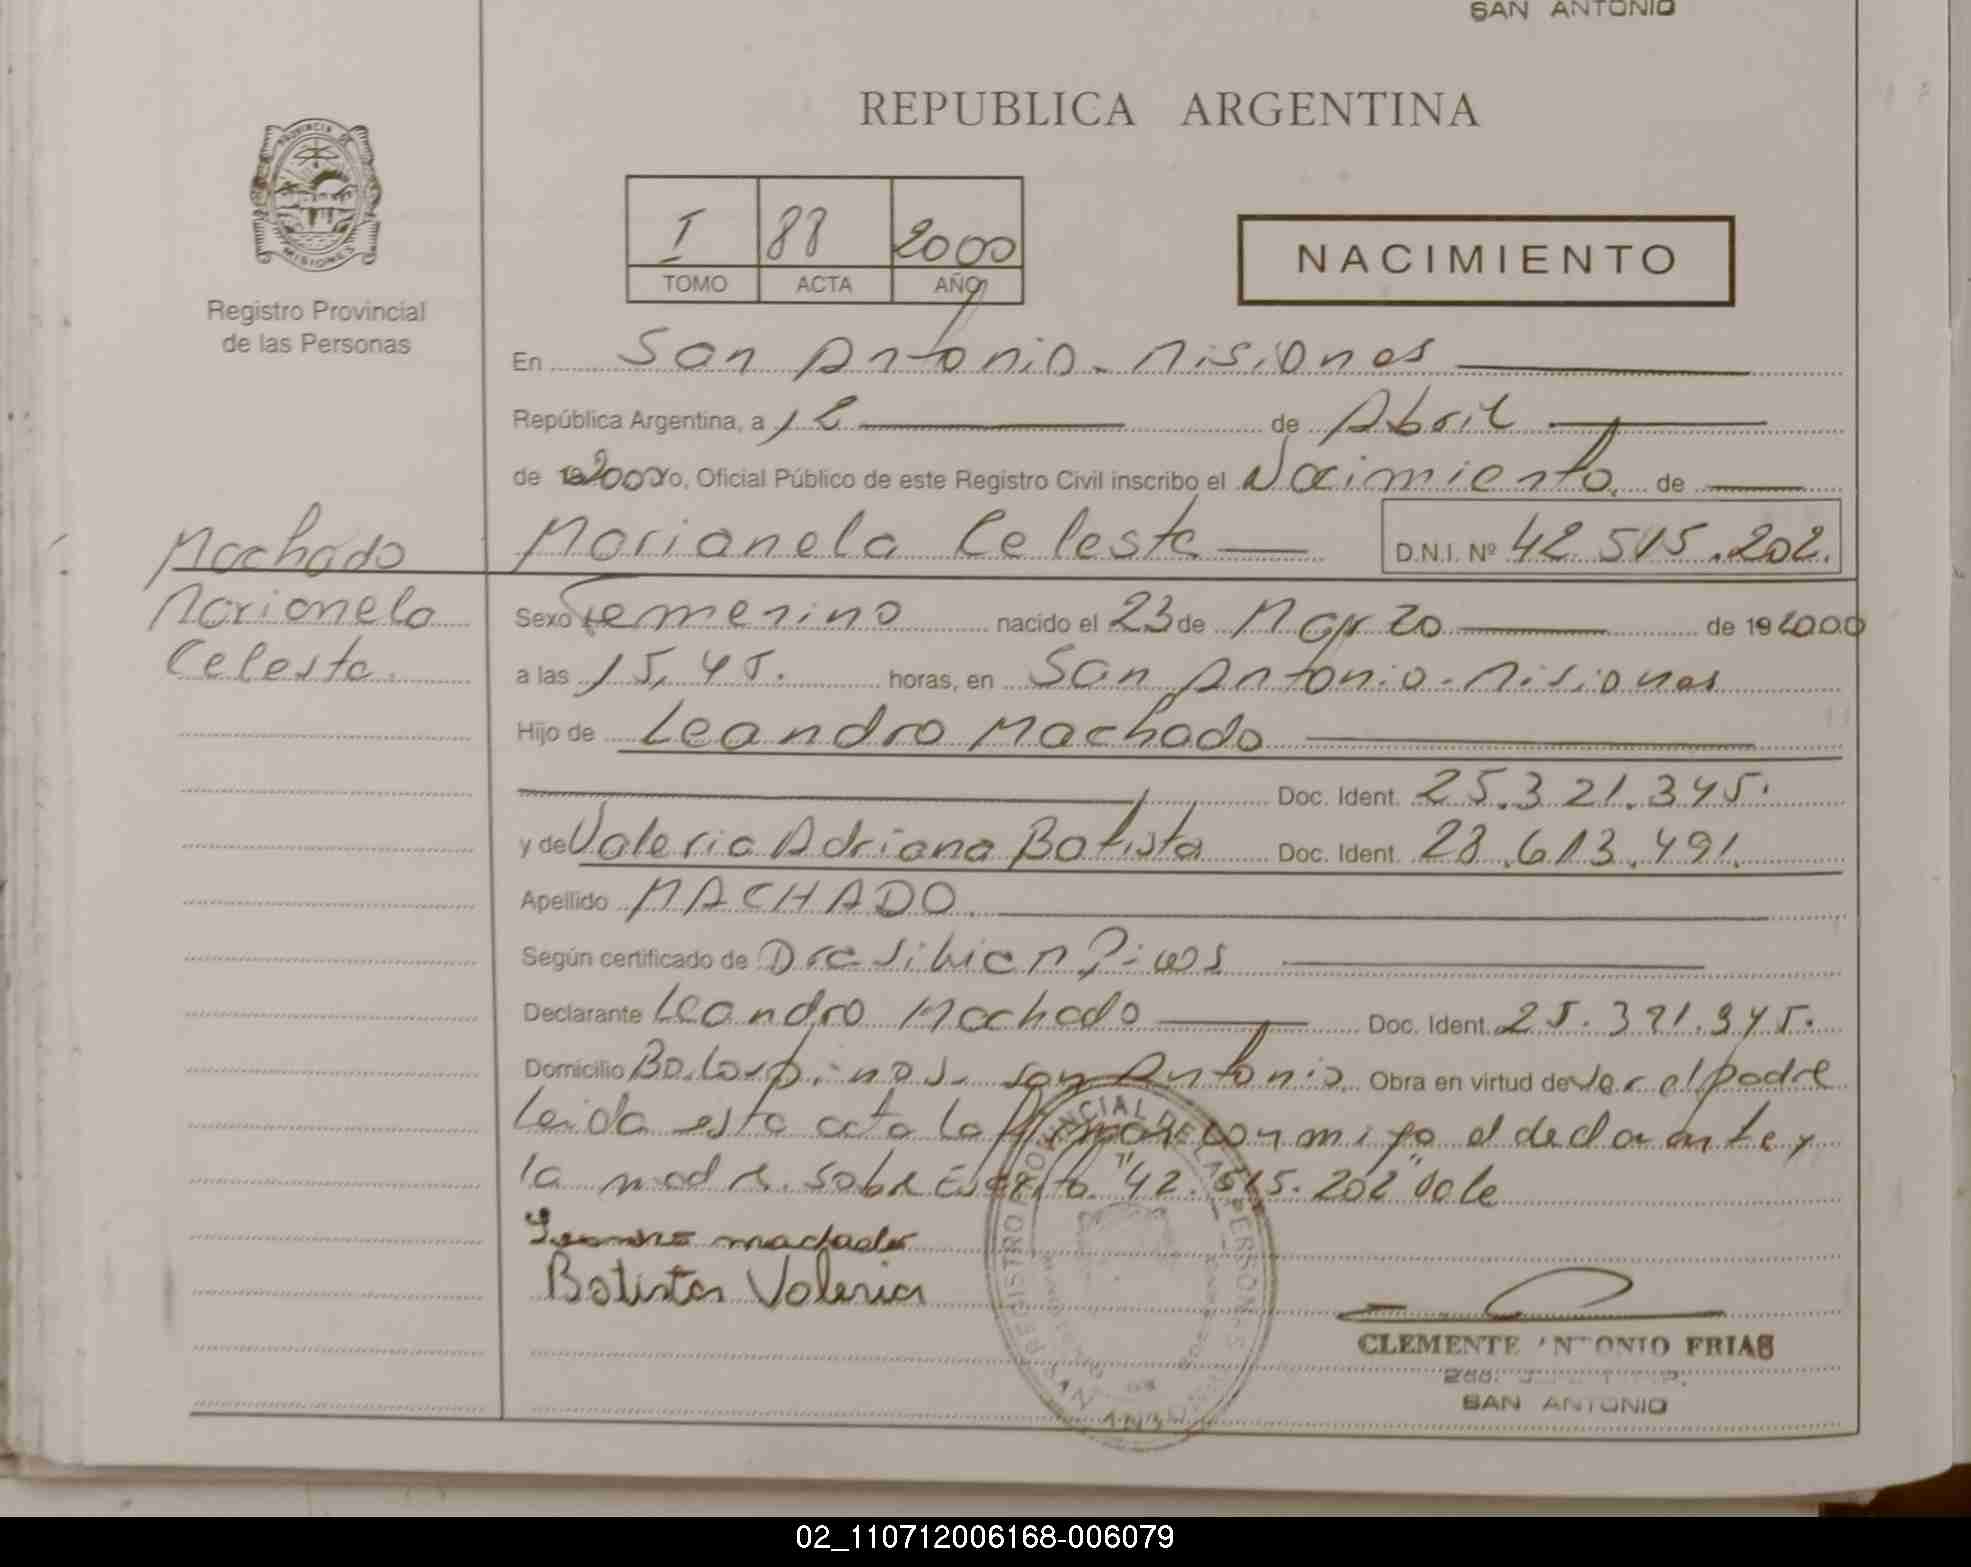 SAN ANTONIO
REPUBLICA ARGENTINA
PROVINCIA DE
MISIONES
Registro Provincial
de las Personas
I 88 2000
TOMO ACTA AÑO
NACIMIENTO
En San Antonio - Misiones
República Argentina, a 12 de Abril
de 2000 yo, Oficial Público de este Registro Civil inscribo el Nacimiento de
Machado
Marianela Celeste D.N.I. Nº 42.515.202.
Marianela
Celeste.
Sexo Femenino nacido el 23 de Marzo de 19 2000
a las 15,45. horas, en San Antonio - Misiones
Hijo de Leandro Machado
Doc. Ident. 25.321.345.
y de Valeria Adriana Batista Doc. Ident. 28.613.491.
Apellido MACHADO
Según certificado de Dra
Declarante Leandro Machado Doc. Ident. 25.321.345.
Domicilio San Antonio. Obra en virtud de ser el padre
Leida esta acta la firman conmigo el declarante y
la madre. Sobre Escrito "42.515.202" Vale
Leandro machado
Batista Valeria
REGISTRO PROVINCIAL DE LAS PERSONAS
SAN ANTONIO
CLEMENTE ANTONIO FRIAS
SAN ANTONIO
02_110712006168-006079